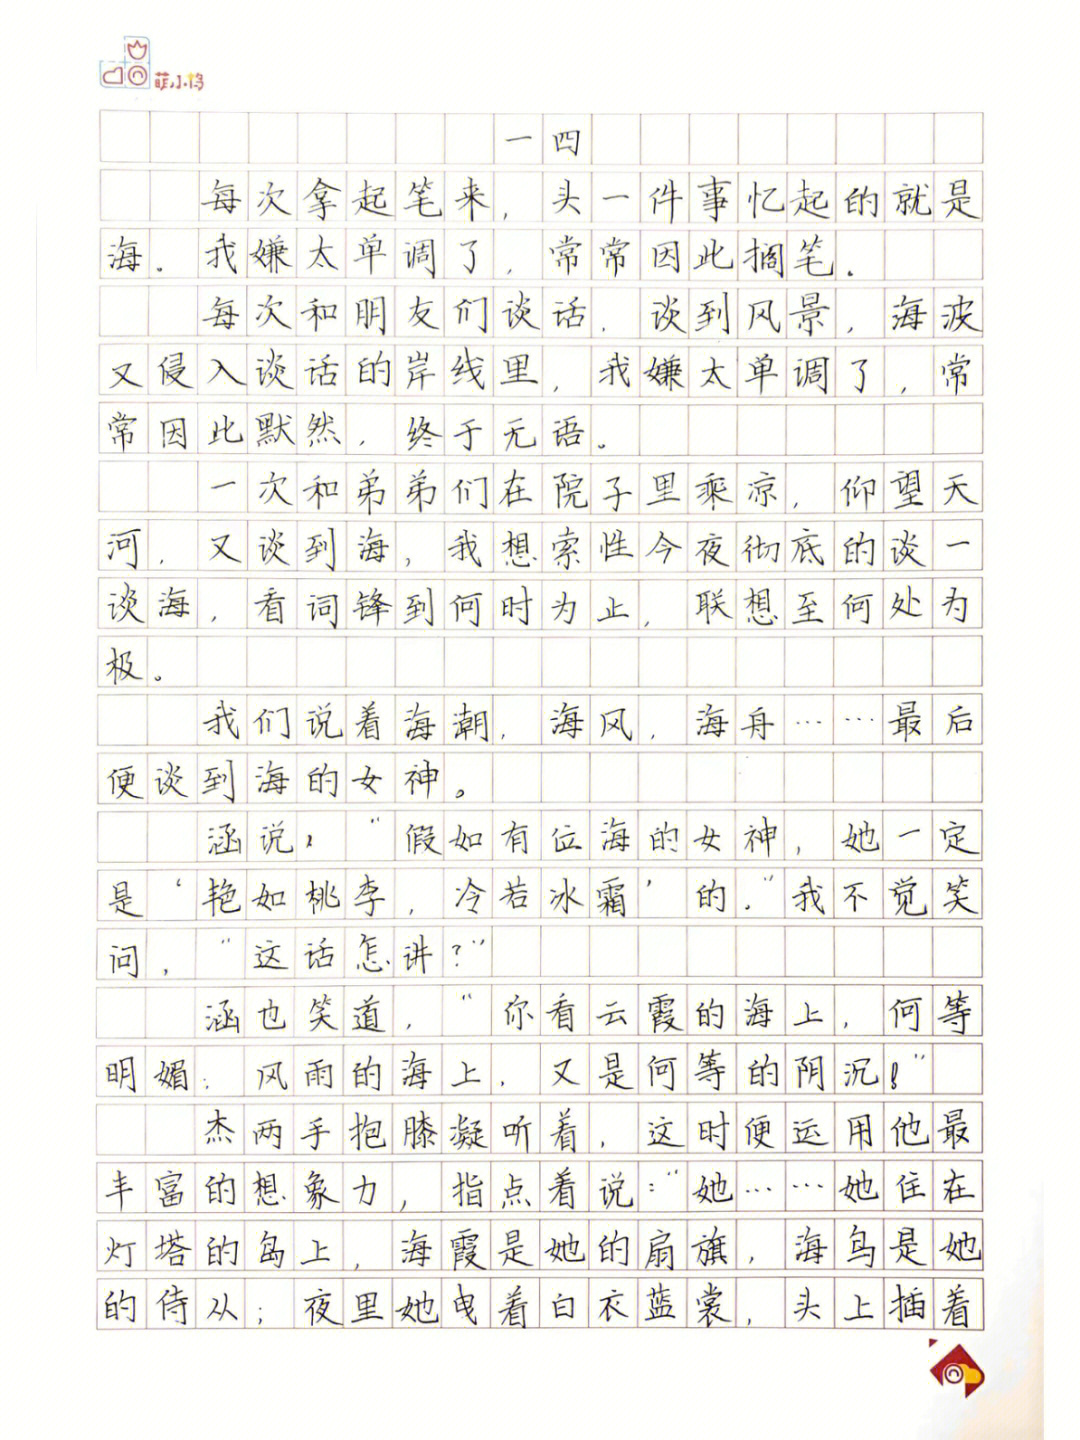 萌小鸽
一四
每次拿起笔来，头一件事忆起的就是
海。我嫌太单调了，常常因此搁笔。
每次和朋友们谈话，谈到风景，海波
又侵入谈话的岸线里，我嫌太单调了，常
常因此默然，终于无语。
一次和弟弟们在院子里乘凉，仰望天
河，又谈到海，我想索性今夜彻底的谈一
谈海，看词锋到何时为止，联想至何处为
极。
我们说着海潮，海风，海舟……最后
便谈到海的女神。
涵说，“假如有位海的女神，她一定
是‘艳如桃李，冷若冰霜’的。”我不觉笑
问，“这话怎讲？”
涵也笑道，“你看云霞的海上，何等
明媚；风雨的海上，又是何等的阴沉！”
杰两手抱膝凝听着，这时便运用他最
丰富的想象力，指点着说：“她……她住在
灯塔的岛上，海霞是她的扇旗，海鸟是她
的侍从；夜里她曳着白衣蓝裳，头上插着